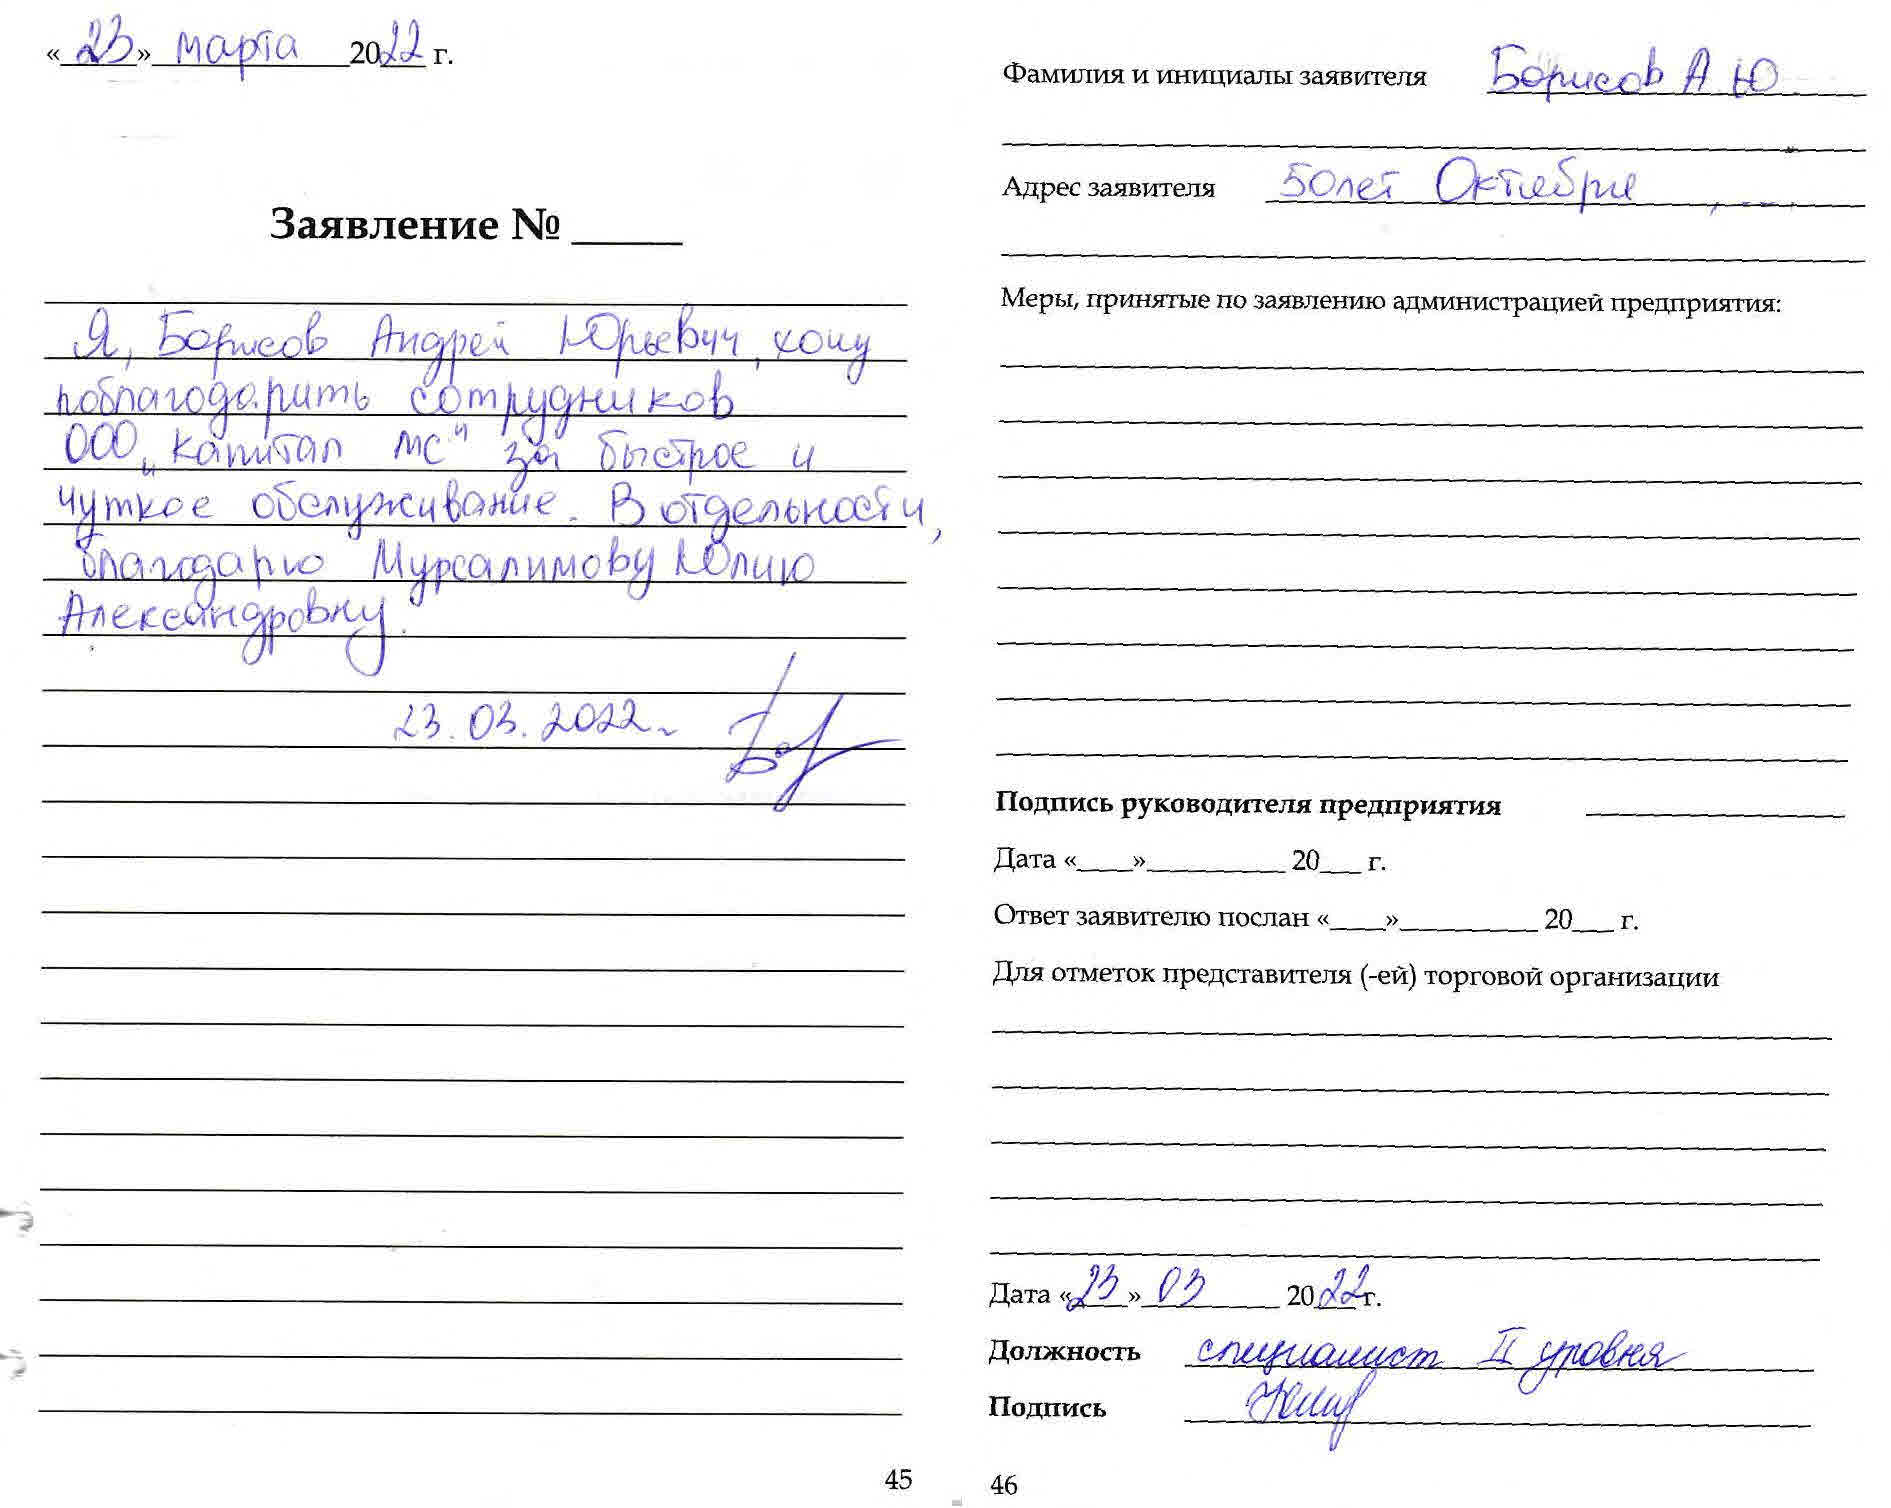 «23» марта 2022 г.
Заявление № ____
Я, Борисов Андрей Юрьевич, хочу
поблагодарить сотрудников
ООО „Капитал МС" за быстрое и
чуткое обслуживание. В отдельности,
благодарю Мурсалимову Юлию
Александровну.
23.03.2022г
45
Фамилия и инициалы заявителя Борисов А Ю
Адрес заявителя 50 лет Октября
Меры, принятые по заявлению администрацией предприятия:
Подпись руководителя предприятия
Дата «____»__________ 20___ г.
Ответ заявителю послан «____»__________ 20___ г.
Для отметок представителя (-ей) торговой организации
Дата «23» 03 2022г.
Должность специалист II уровня
Подпись
46